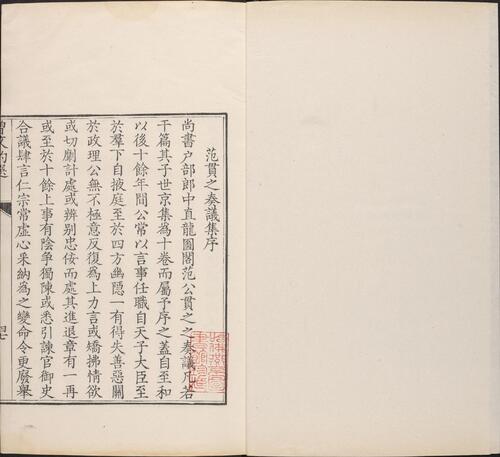 范貫之奏議集序
尚書户部郎中直龍圖閣范公貫之之奏議凡若
干篇其子世京集為十卷而屬予序之蓋自至和
以後十餘年間公常以言事任職自天子大臣至
於羣下自掖庭至於四方幽隱一有得失善惡關
於政理公無不極意反復為上力言或矯拂情欲
或切劘計慮或辨别忠佞而處其進退章有一再
或至於十餘上事有陰爭獨陳或悉引諫官御史
合議肆言仁宗常虛心采納為之變命令更廢舉